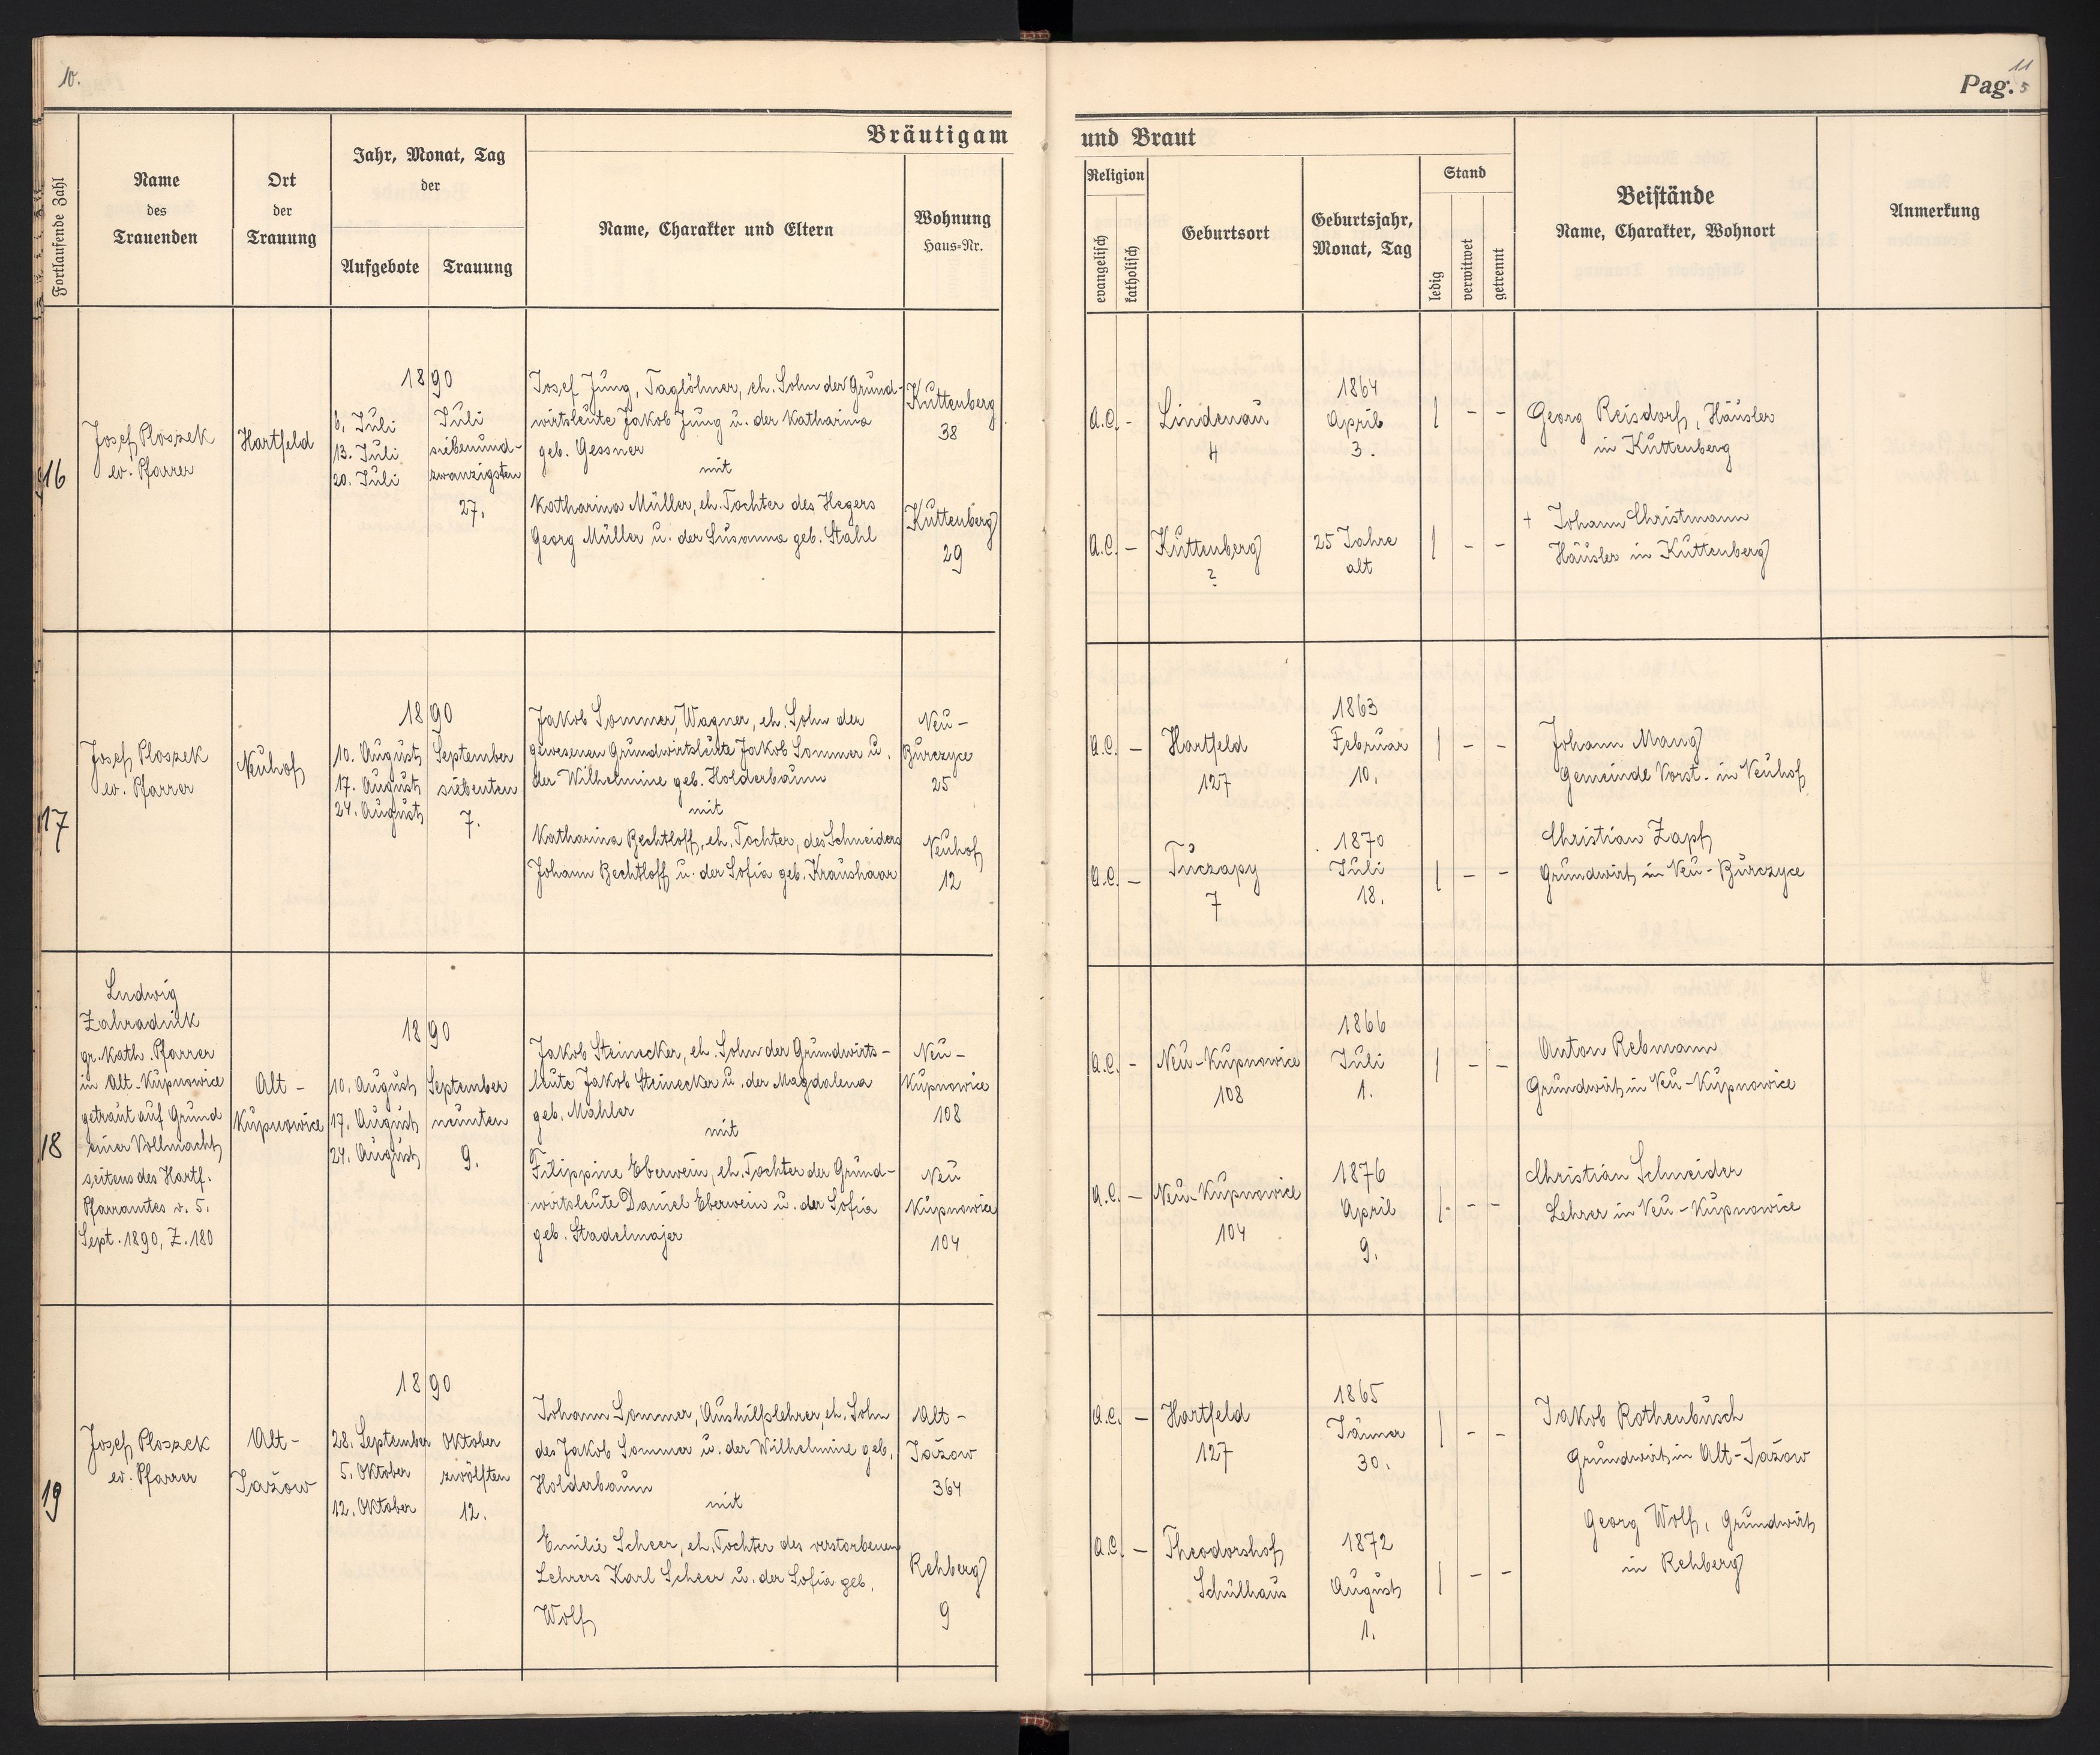 10.
Pag. 5
11
Bräutigam und Braut
Fortlaufende Zahl
Name
des
Trauenden
Ort
der
Trauung
Jahr, Monat, Tag
der
Aufgebote
Trauung
Name, Charakter und Eltern
Wohnung
Haus-Nr.
Religion
evangelisch
katholisch
Geburtsort
Geburtsjahr,
Monat, Tag
Stand
ledig
verwitwet
getrennt
Beistände
Name, Charakter, Wohnort
Anmerkung
16
Josef Ploszek
ev. Pfarrer
Hartfeld
1890
6. Juli
13. Juli
20. Juli
Juli
siebenund-
zwanzigsten
27.
Josef Jung, Taglöhner, eh. Sohn der Grund-
wirtsleute Jakob Jung u. der Katharina
geb. Gessner
mit
Katharina Müller, eh. Tochter des Hegers
Georg Müller u. der Susanna geb. Stahl
Kuttenberg
38
Kuttenberg
29
A.C. -
Lindenau
4
1864
April
3.
| - -
A.C. -
Kuttenberg
?
25 Jahre
alt
| - -
Georg Reisdorf, Häusler
in Kuttenberg
+ Johann Christmann
Häusler in Kuttenberg
17
Josef Ploszek
ev. Pfarrer
Neuhof
1890
10. August
17. August
24. August
September
siebenten
7.
Jakob Sommer, Wagner, eh. Sohn der
gewesenen Grundwirtsleute Jakob Sommer u.
der Wilhelmine geb. Holderbaum
mit
Katharina Bechtloff, eh. Tochter, des Schneiders
Johann Bechtloff u. der Sofia geb. Kraushaar
Neu-
Burczyce
25
Neuhof
12
A.C. -
Hartfeld
127
1863
Februar
10.
| - -
A.C. -
Tuczapy
7
1870
Juli
18.
| - -
Johann Mang
Gemeinde Vorst. in Neuhof
Christian Zapf
Grundwirt in Neu-Burczyce
18
Ludwig
Zahradnik
gr. kath. Pfarrer
in Alt-Kupnowice
getraut auf Grund
einer Vollmacht
seitens des Hartf.
Pfarramtes v. 5.
Sept. 1890, Z. 180
Alt-
Kupnowice
1890
10. August
17. August
24. August
September
neunten
9.
Jakob Steinecker, eh. Sohn der Grundwirts-
leute Jakob Steinecker u. der Magdalena
geb. Mahler
mit
Filippine Eberwein, eh. Tochter der Grund-
wirtsleute Daniel Eberwein u. der Sofia
geb. Stadelmajer
Neu-
Kupnowice
108
Neu
Kupnowice
104
A.C. -
Neu-Kupnowice
108
1866
Juli
1.
| - -
A.C. -
Neu-Kupnowice
104
1876
April
9.
| - -
Anton Rebmann
Grundwirt in Neu-Kupnowice
Christian Schneider
Lehrer in Neu-Kupnowice
19
Josef Ploszek
ev. Pfarrer
Alt-
Jażow
1890
28. September
5. Oktober
12. Oktober
Oktober
zwölften
12.
Johann Sommer, Aushilfslehrer, eh. Sohn
des Jakob Sommer u. der Wilhelmine geb.
Holderbaum
mit
Emilie Scheer, eh. Tochter des verstorbenen
Lehrers Karl Scheer u. der Sofia geb.
Wolf
Alt-
Jażow
364
Rehberg
9
A.C. -
Hartfeld
127
1865
Jänner
30.
| - -
A.C. -
Theodorshof
Schulhaus
1872
August
1.
| - -
Jakob Rothenbusch
Grundwirt in Alt-Jażow
Georg Wolf, Grundwirt
in Rehberg